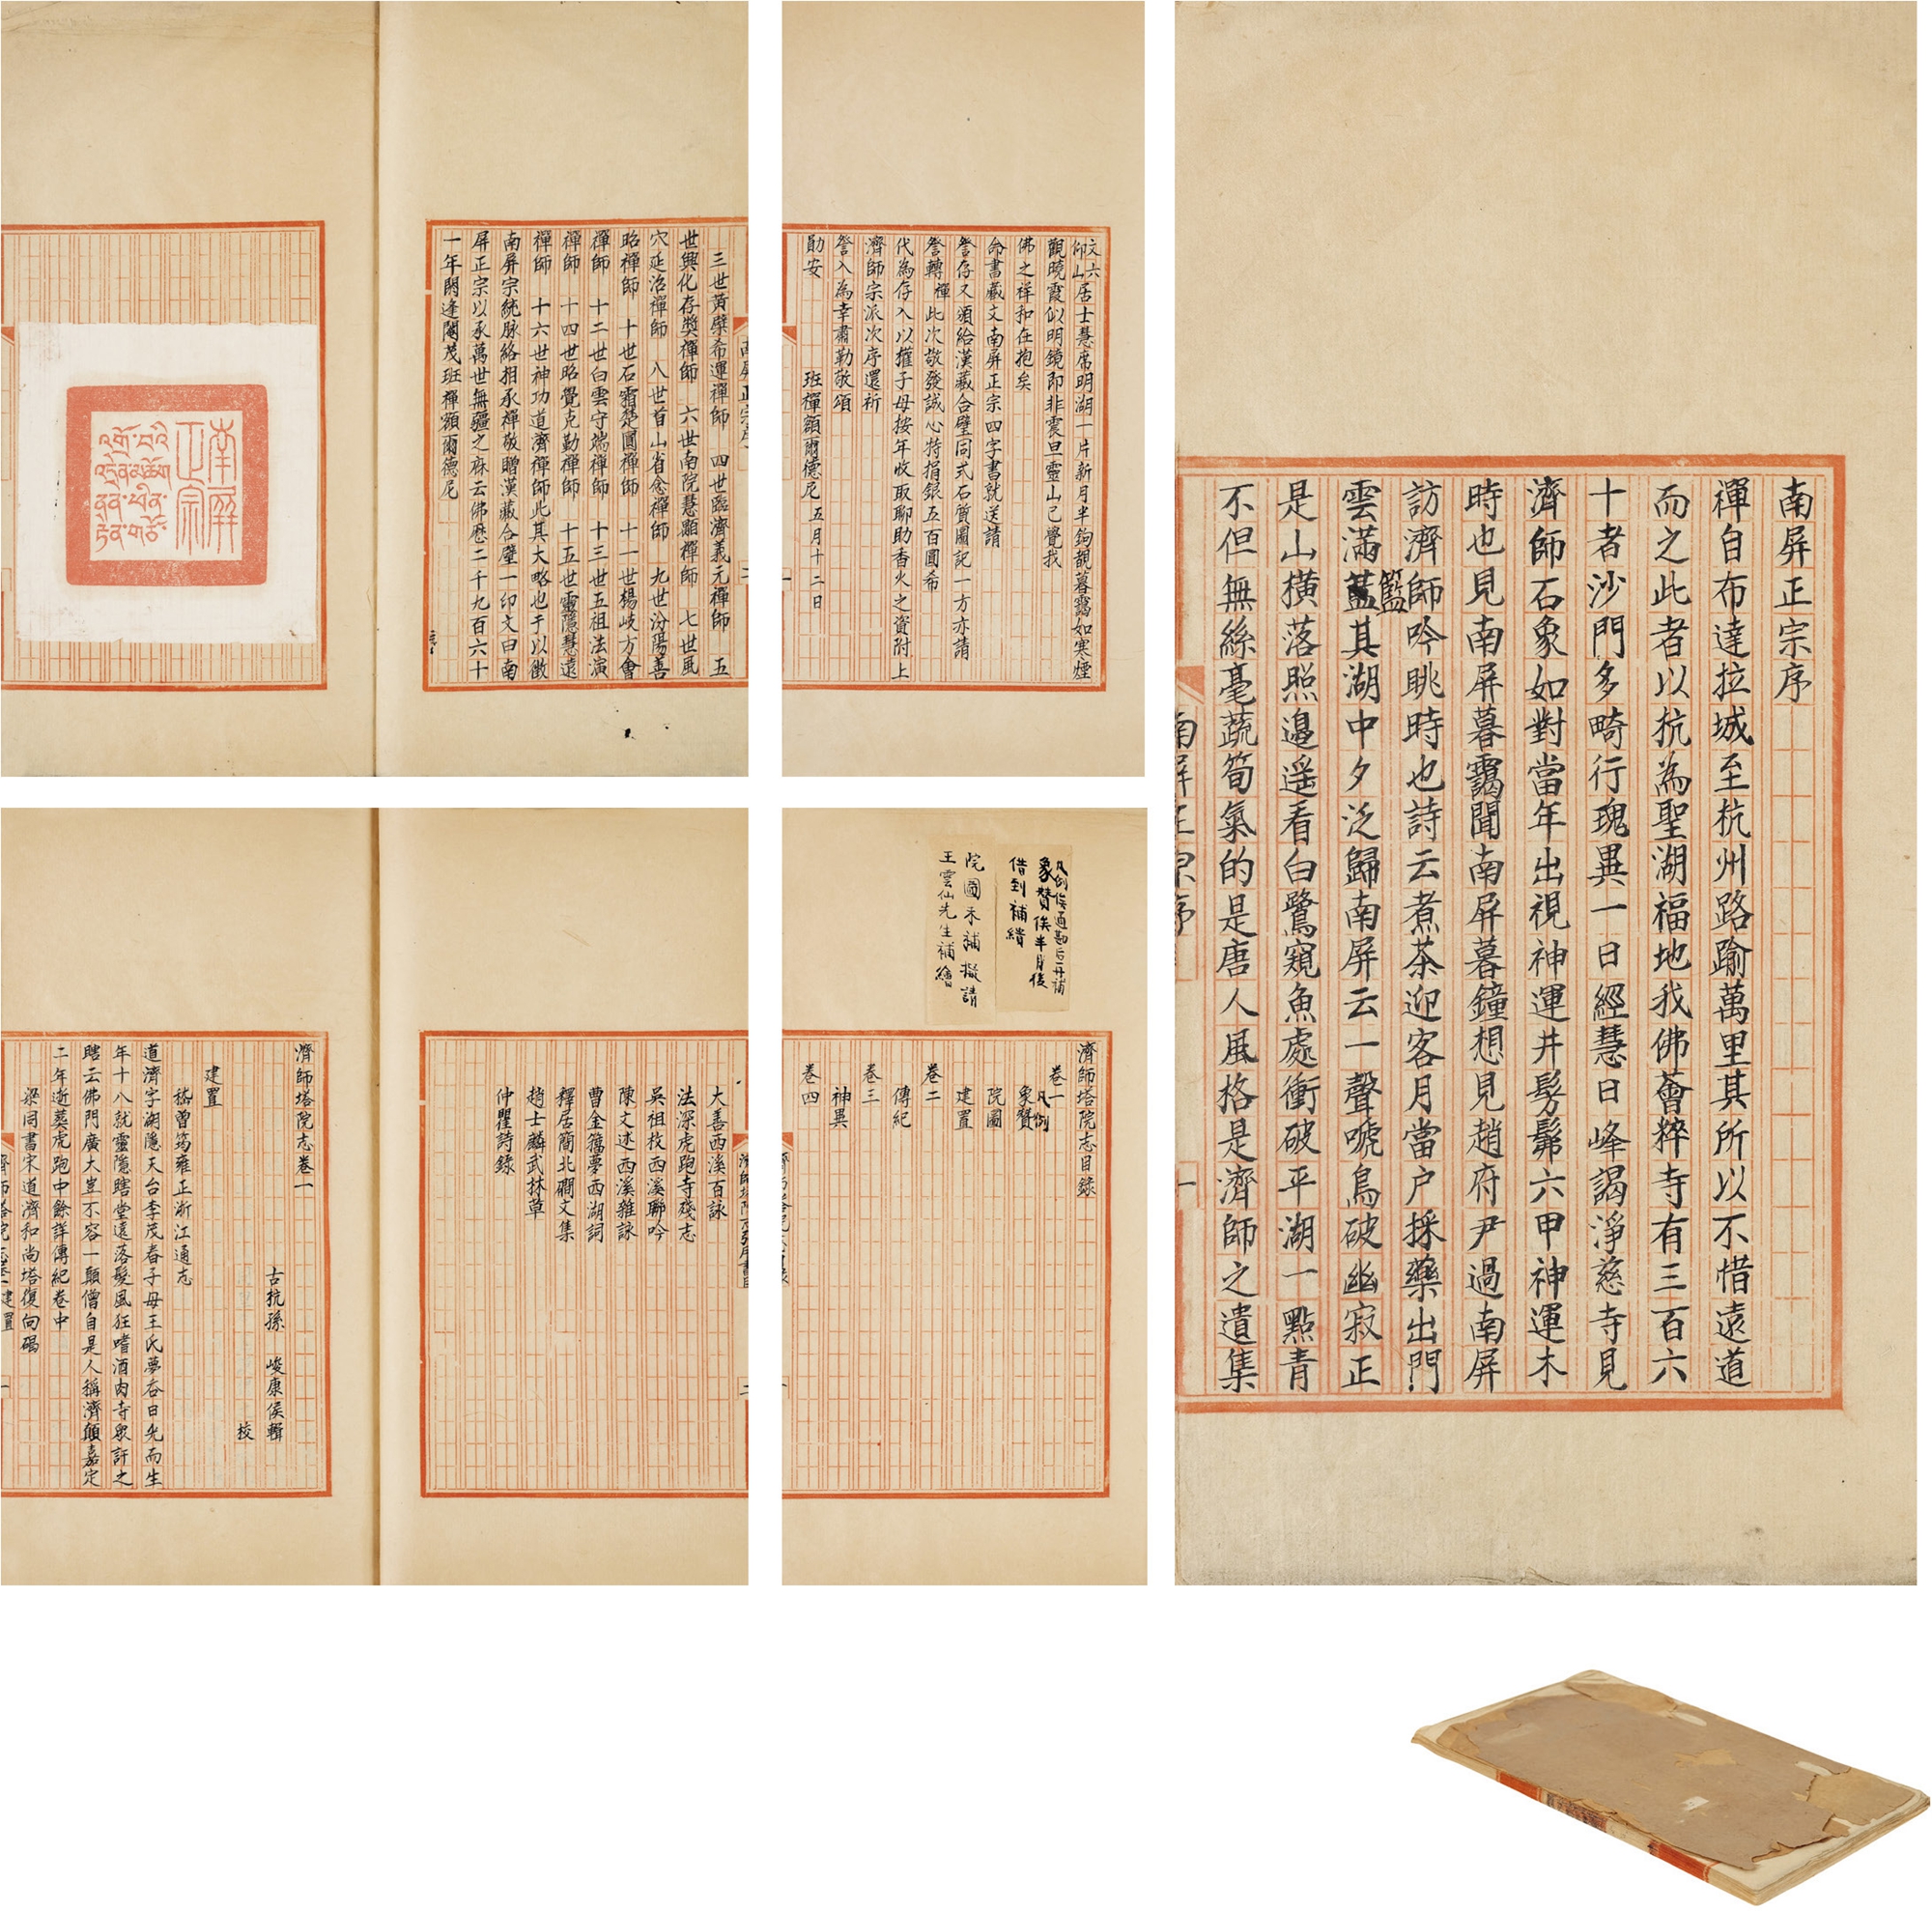 南屏正宗序
禪自布達拉城至杭州路踰萬里其所以不惜遠道
而之此者以杭為聖湖福地我佛薈粹寺有三百六
十者沙門多畸行瑰異一日經慧日峰謁淨慈寺見
濟師石象如對當年出視神運井髣髴六甲神運木
時也見南屏暮靄聞南屏暮鐘想見趙府尹過南屏
訪濟師吟眺時也詩云煮茶迎客月當户採藥出門
雲滿籃其湖中夕泛歸南屏云一聲嗁鳥破幽寂正
是山橫落照邉遥看白鷺窺魚處衝破平湖一點青
不但無絲毫蔬筍氣的是唐人風格是濟師之遺集
南屏正宗序
一
文六
仰山居士慧席明湖一片新月半鉤靚暮靄如寒煙
觀曉霞似明鏡即非震旦靈山已覺我
佛之祥和在抱矣
命書藏文南屏正宗四字書就送請
詧存又須給漢藏合璧同式石質圖記一方亦請
詧轉禪此次敬發誠心特捐銀五百圓希
代為存入以權子母按年收取聊助香火之資附上
濟師宗派次序還祈
詧入為幸肅勒敬頌
勛安　班禪額爾德尼　五月十二日
南屏正宗序
二
三世黃檗希運禪師　四世臨濟義元禪師　五
世興化存獎禪師　六世南院慧顒禪師　七世風
穴延沼禪師　八世首山省念禪師　九世汾陽善
昭禪師　十世石霜楚圓禪師　十一世楊岐方會
禪師　十二世白雲守端禪師　十三世五祖法演
禪師　十四世昭覺克勤禪師　十五世靈隱慧遠
禪師　十六世神功道濟禪師此其大略也于以徵
南屏宗統脉絡相承禪敬贈漢藏合璧一印文曰南
屏正宗以承萬世無疆之庥云佛歷二千九百六十
一年閼逢閹茂班禪額爾德尼
南屏
正宗
凡例俟通勘后再補
象贊俟半月後
借到補繕
院圖未補擬請
王雲仙先生補繪
濟師塔院志目錄
卷一
凡例
象贊
院圖
建置
卷二
傳紀
卷三
神異
卷四
二
大善西溪百詠
法深虎跑寺殘志
吳祖枚西溪聯吟
陳文述西溪雜詠
曹金籀夢西湖詞
釋居簡北磵文集
趙士麟武林草
仲瞿詩錄
濟師塔院志卷一
古杭孫　峻康侯輯
校
建置
嵇曾筠雍正浙江通志
道濟字湖隱天台李茂春子母王氏夢吞日光而生
年十八就靈隱瞎堂遠落髮風狂嗜酒肉寺衆訐之
瞎云佛門廣大豈不容一顛僧自是人稱濟顛嘉定
二年逝葬虎跑中餘詳傳紀卷中
梁同書宋道濟和尚塔復向碣